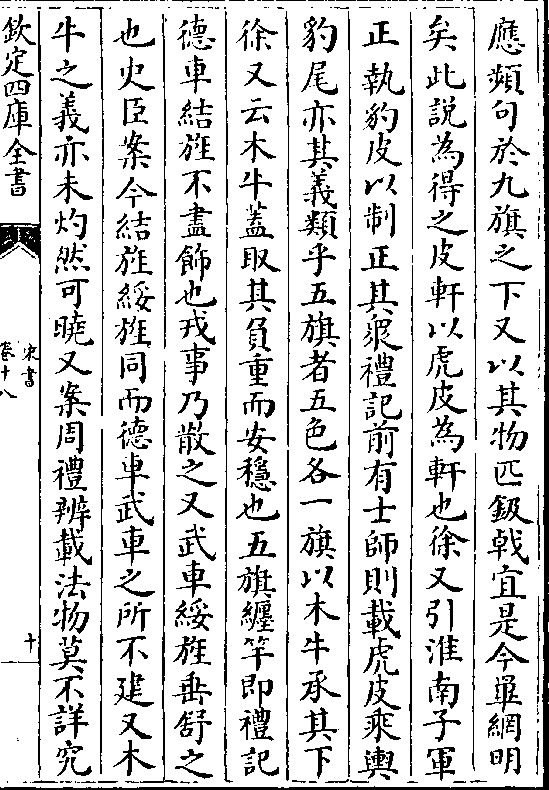 應頻句於九旗之下又以其物匹鈒戟宜是今䍐網明
矣此說為得之皮軒以虎皮為軒也徐又引淮南子軍
正執豹皮以制正其衆禮記前有士師則載虎皮乘輿
豹尾亦其義類乎五旗者五色各一旗以木牛承其下
徐又云木牛蓋取其負重而安穩也五旗纏竿即禮記
德車結旌不盡飾也戎事乃散之又武車綏旌垂舒之
也史臣案今結旌綏旌同而德車武車之所不建又木
牛之義亦未灼然可曉又案周禮辨載法物莫不詳究
欽定四庫全書
宋書
卷十八
十